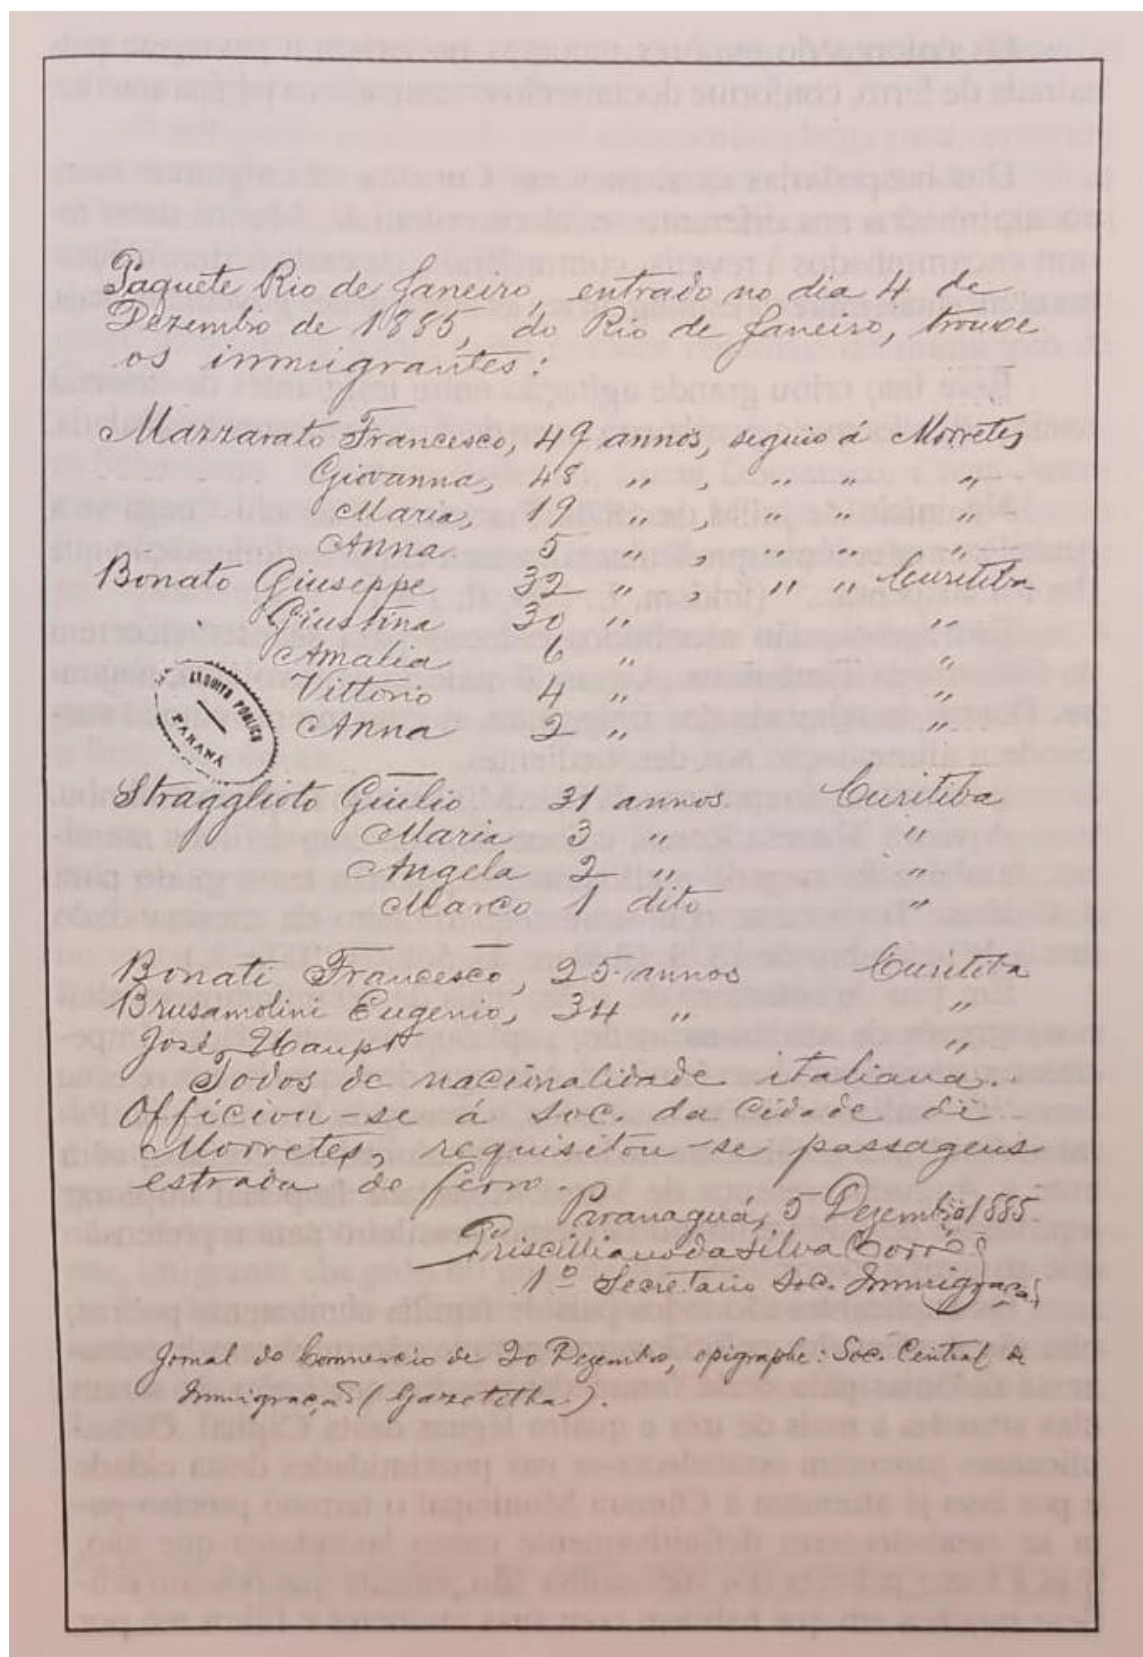 Paquete Rio de Janeiro, entrado no dia 4 de
Dezembro de 1885, do Rio de Janeiro, trouxe
os immigrantes:
Mazzarato Francesco, 49 annos, seguio á Morretes
Giovanna, 48 " , " " "
Maria, 19 " , " " "
Anna 5 " , " " "
Bonato Giuseppe 32 " , " " Curitiba
Giustina 30 " "
Amalia 6 " "
Vittorio 4 " "
Anna 2 " "
ARQUIVO PÚBLICO
PARANÁ
Stragglioto Giulio 31 annos Curitiba
Maria 3 " "
Angela 2 " "
Marco 1 dito "
Bonati Francesco, 25 annos Curitiba
Brusamolini Eugenio, 34 " "
José Haupt "
Todos de nacionalidade italiana.
Officiou-se á Soc. da Cidade de
Morretes, requisitou-se passagens
estrada de ferro.
Paranaguá, 5 Dezembro 1885
Priscilliano da Silva Corrêa
1º Secretario Soc. Immigração
Jornal do Commercio de 20 Dezembro, epigraphe: Soc. Central de
Immigração (Gazetilha).